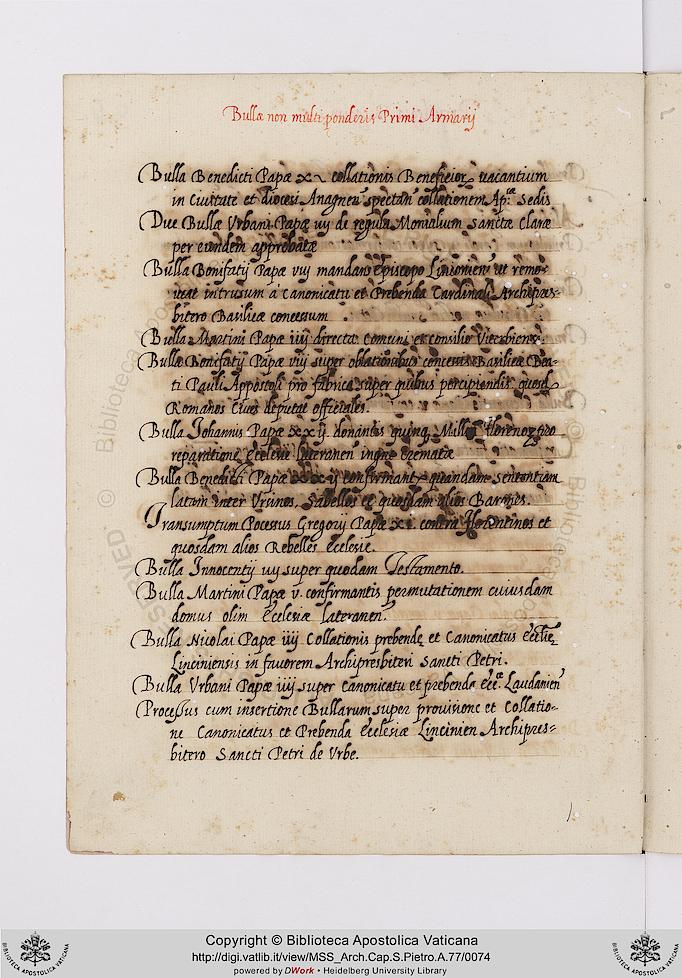 Bullæ non multi ponderis Primi Armarij
Bulla Benedicti Papæ collationis Beneficior. vacantium
in Civitate et diocesi Anagnen spectan collationem Ap.ca Sedis
Due Bullæ Urbani Papæ iiij de regula Monialium Sanctæ Claræ
per eundem approbatæ
Bulla Bonifatij Papæ viij mandans Episcopo ut remo-
veat intrusum à Canonicatu et Prebenda Cardinali Archipres-
bitero Basilicæ concessum
Bulla Martini Papæ iiij directa Comuni et consilio Viterbien
Bullæ Bonifatij Papæ viij super oblationibus concessis Basilicæ Bea-
ti Pauli Appostoli pro fabrica super quibus percipiendis quosd.
Romanos Cives deputat officiales.
Bulla Johannis Papæ xxij donantis quinq. Millia florenoz pro
reparatione Ecclesie lateranen igne crematæ
Bulla Benedicti Papæ confirmantis quandam sententiam
latam inter Ursinos, Sabellos et quosdam alios Barones.
Transumptum Pocessus Gregorij Papæ xi. contra Florentinos et
quosdam alios Rebelles Ecclesie.
Bulla Innocentij iiij super quodam Testamento.
Bulla Martini Papæ v. confirmantis permutationem cuiusdam
domus olim Ecclesiæ lateranen.
Bulla Nicolai Papæ iiij Collationis prebendę et Canonicatus Ecclie
Linciniensis in favorem Archipresbiteri Sancti Petri.
Bulla Urbani Papæ iiij super Canonicatu et prebenda ecc.æ Laudunien
Processus cum insertione Bullarum super provisione et Collatio-
ne Canonicatus et Prebenda Ecclesiæ Lincinien Archipres-
bitero Sancti Petri de Urbe.
Copyright © Biblioteca Apostolica Vaticana
http://digi.vatlib.it/view/MSS_Arch.Cap.S.Pietro.A.77/0074
powered by DWork • Heidelberg University Library